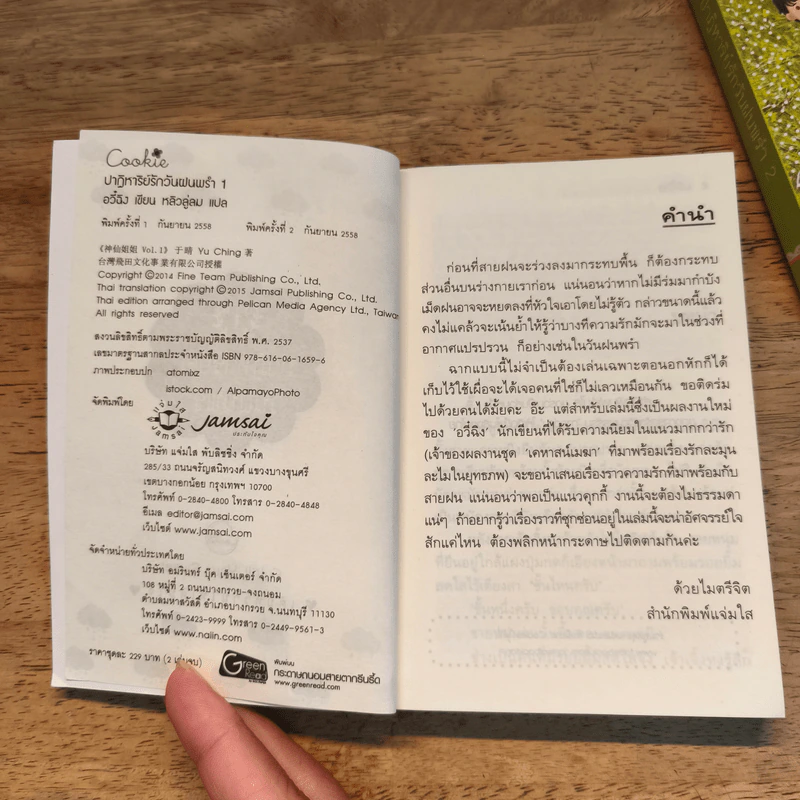 Cookie
ปาฏิหาริย์รักวันฝนพรำ 1
อวี๋ฉิง เขียน หลิวลู่ลม แปล
พิมพ์ครั้งที่ 1 กันยายน 2558 พิมพ์ครั้งที่ 2 กันยายน 2558
《神仙姐姐 Vol.1》于晴 Yu Ching 著
台灣飛田文化事業有限公司授權
Copyright ©2014 Fine Team Publishing Co., Ltd.
Thai translation copyright ©2015 Jamsai Publishing Co., Ltd.
Thai edition arranged through Pelican Media Agency Ltd., Taiwan
All rights reserved
สงวนลิขสิทธิ์ตามพระราชบัญญัติลิขสิทธิ์ พ.ศ. 2537
เลขมาตรฐานสากลประจำหนังสือ ISBN 978-616-06-1659-6
ภาพประกอบปก atomixz
istock.com / AlpamayoPhoto
จัดพิมพ์โดย
แจ่มใส
Jamsai
Jamsai
ประทับใจคุณ
บริษัท แจ่มใส พับลิชชิ่ง จำกัด
285/33 ถนนจรัญสนิทวงศ์ แขวงบางขุนศรี
เขตบางกอกน้อย กรุงเทพฯ 10700
โทรศัพท์ 0-2840-4800 โทรสาร 0-2840-4848
อีเมล editor@jamsai.com
เว็บไซต์ www.jamsai.com
จัดจำหน่ายทั่วประเทศโดย
บริษัท อมรินทร์ บุ๊ค เซ็นเตอร์ จำกัด
108 หมู่ที่ 2 ถนนบางกรวย-จงถนอม
ตำบลมหาสวัสดิ์ อำเภอบางกรวย จ.นนทบุรี 11130
โทรศัพท์ 0-2423-9999 โทรสาร 0-2449-9561-3
เว็บไซต์ www.naiin.com
ราคาชุดละ 229 บาท (2 เล่มจบ)
Green Read
พิมพ์บน
กระดาษถนอมสายตากรีนรี้ด
www.greenread.com
คำนำ
ก่อนที่สายฝนจะร่วงลงมากระทบพื้น ก็ต้องกระทบ
ส่วนอื่นบนร่างกายเราก่อน แน่นอนว่าหากไม่มีร่มมากำบัง
เม็ดฝนอาจจะหยดลงที่หัวใจเอาโดยไม่รู้ตัว กล่าวขนาดนี้แล้ว
คงไม่แคล้วจะเน้นย้ำให้รู้ว่าบางทีความรักมักจะมาในช่วงที่
อากาศแปรปรวน ก็อย่างเช่นในวันฝนพรำ
ฉากแบบนี้ไม่จำเป็นต้องเล่นเฉพาะตอนอกหักก็ได้
เก็บไว้ใช้เผื่อจะได้เจอคนที่ใช่ก็ไม่เลวเหมือนกัน ขอติดร่ม
ไปด้วยคนได้มั้ยคะ อ๊ะ แต่สำหรับเล่มนี้ซึ่งเป็นผลงานใหม่
ของ 'อวี๋ฉิง' นักเขียนที่ได้รับความนิยมในแนวมากกว่ารัก
(เจ้าของผลงานชุด 'เคหาสน์เมฆา' ที่มาพร้อมเรื่องรักละมุน
ละไมในยุทธภพ) จะขอนำเสนอเรื่องราวความรักที่มาพร้อมกับ
สายฝน แน่นอนว่าพอเป็นแนวคุกกี้ งานนี้จะต้องไม่ธรรมดา
แน่ๆ ถ้าอยากรู้ว่าเรื่องราวที่ซุกซ่อนอยู่ในเล่มนี้จะน่าอัศจรรย์ใจ
สักแค่ไหน ต้องพลิกหน้ากระดาษไปติดตามกันค่ะ
ด้วยไมตรีจิต
สำนักพิมพ์แจ่มใส